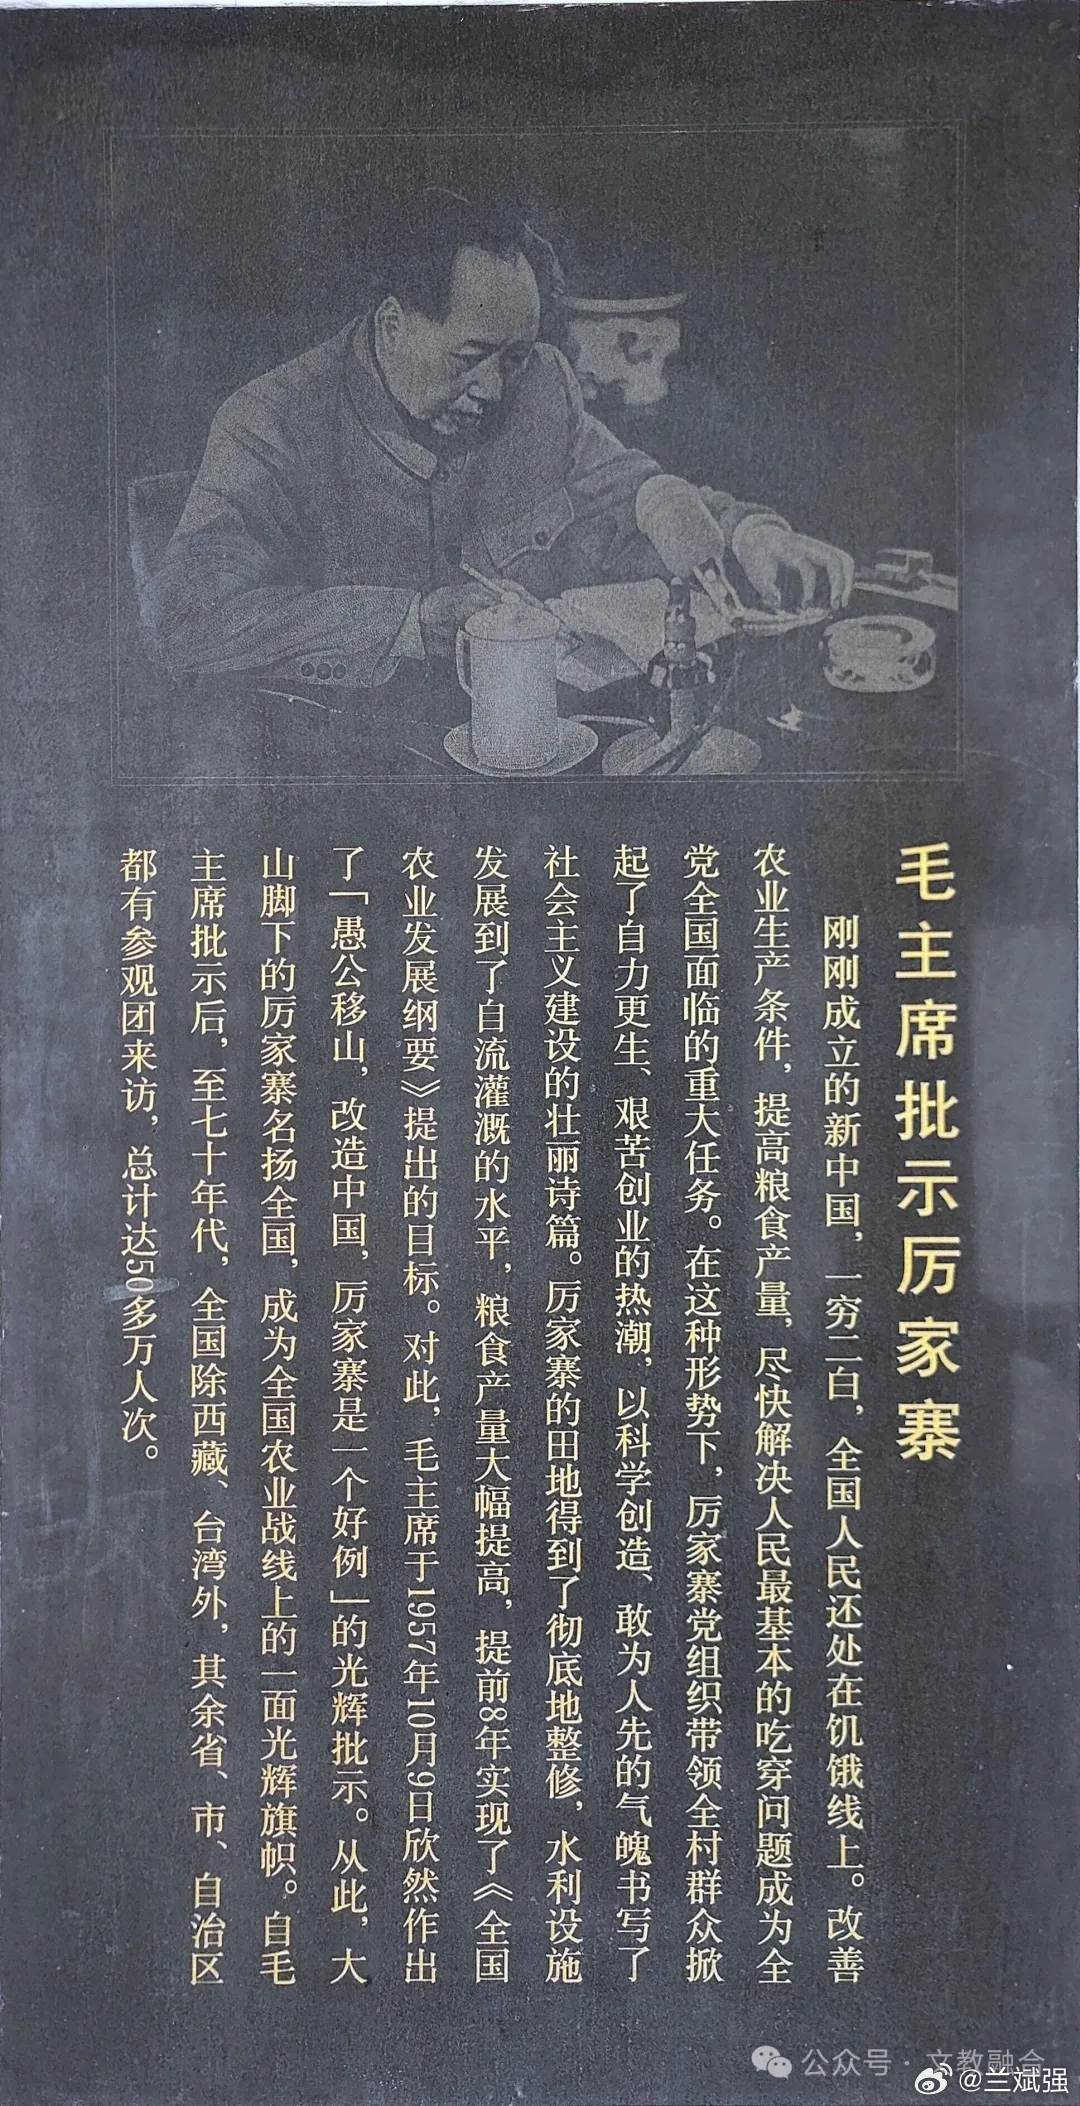 毛主席批示厉家寨
刚刚成立的新中国，一穷二白，全国人民还处在饥饿线上。改善
农业生产条件，提高粮食产量，尽快解决人民最基本的吃穿问题成为全
党全国面临的重大任务。在这种形势下，厉家寨党组织带领全村群众掀
起了自力更生、艰苦创业的热潮，以科学创造、敢为人先的气魄书写了
社会主义建设的壮丽诗篇。厉家寨的田地得到了彻底地整修，水利设施
发展到了自流灌溉的水平，粮食产量大幅提高，提前8年实现了《全国
农业发展纲要》提出的目标。对此，毛主席于1957年10月9日欣然作出
了「愚公移山，改造中国，厉家寨是一个好例」的光辉批示。从此，大
山脚下的厉家寨名扬全国，成为全国农业战线上的一面光辉旗帜。自毛
主席批示后，至七十年代，全国除西藏、台湾外，其余省、市、自治区
都有参观团来访，总计达50多万人次。
公众号·文教融合
@兰斌强